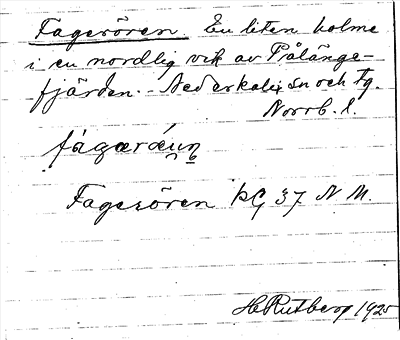 Fagerören. En liten holme
i en nordlig vik av Prålänge-
fjärden. - Nederkalix sn och tg.
Norrb. l.
Fagerören kG 37 N. M.
H Rutberg 1925